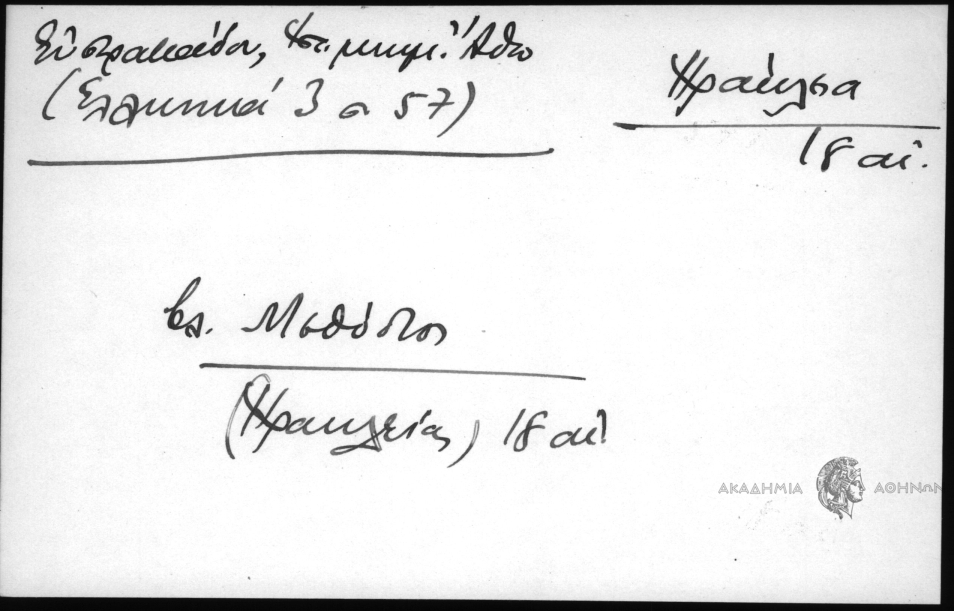 Εὐστρατιάδου, Ἱστ. μνημ. Ἄθω
(Ἑλληνικά 3 σ 57)
Ἡράκλεια
18 αἰ.
βλ. Μεθόδιος
(Ἡρακλείας) 18 αἰ
ΑΚΑΔΗΜΙΑ ΑΘΗΝΩΝ